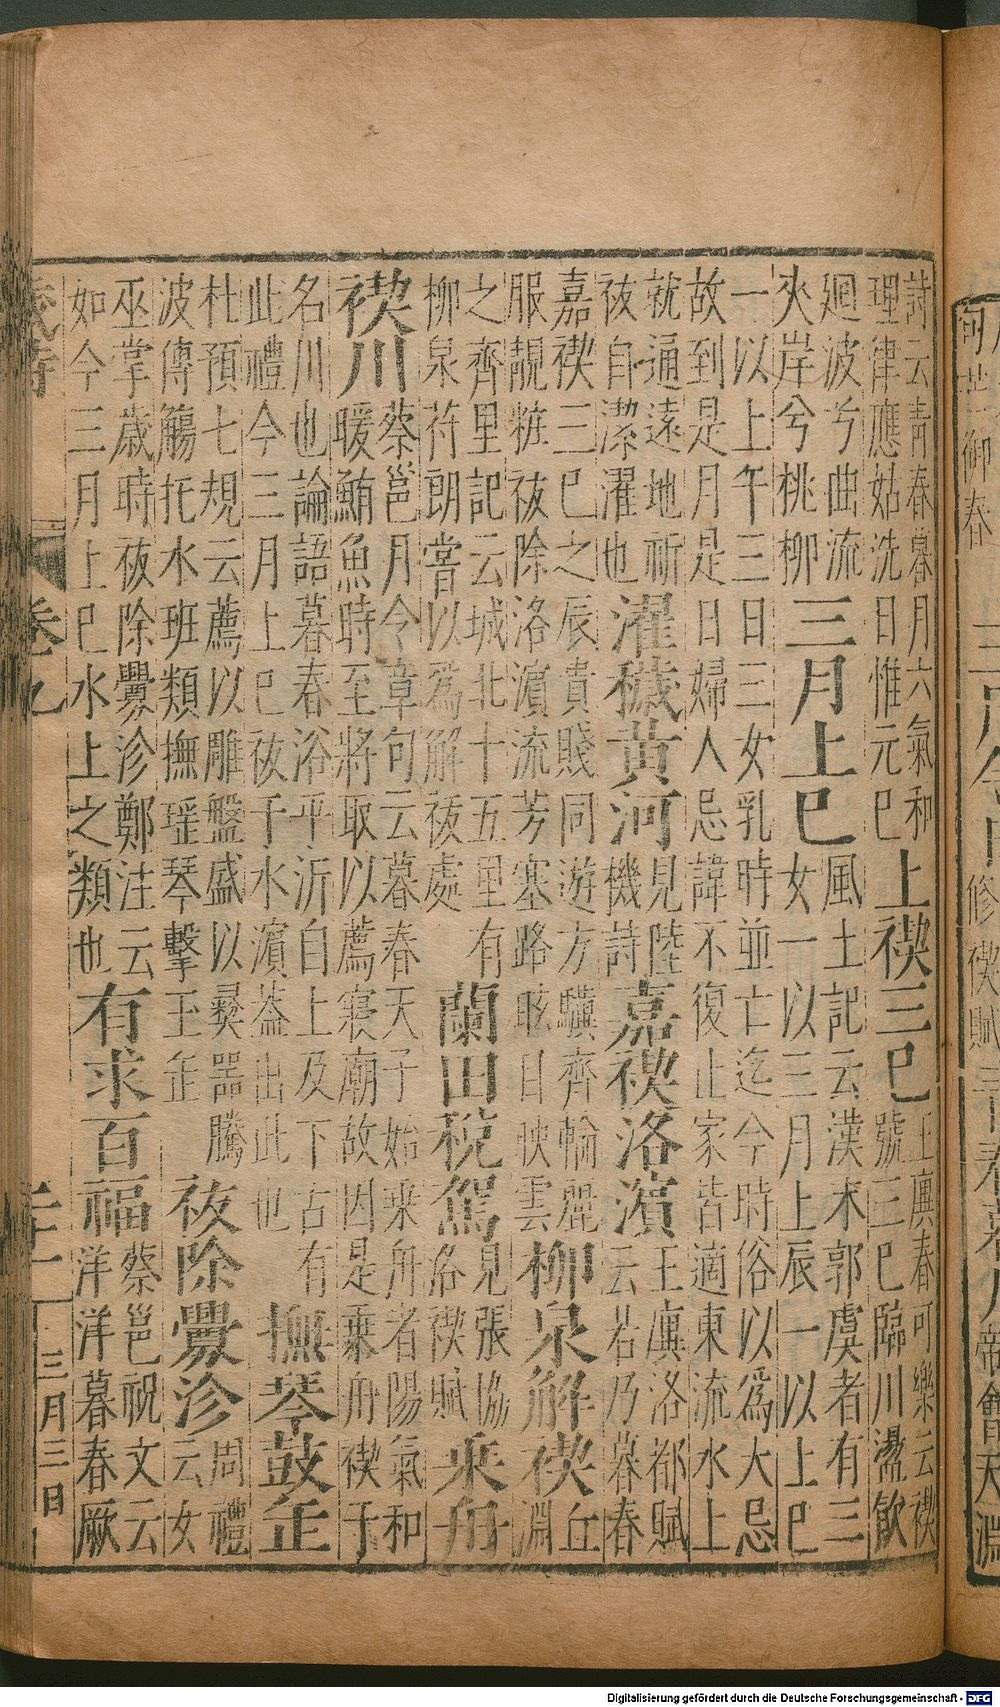 詩云青春暮月六氣和
理律應姑洗日惟元巳
上禊三巳
王廙春可樂云禊
號三巳臨川盪飲
廻波兮曲流
夾岸兮桃柳
三月上巳
風土記云漢末郭虞者有三
女一以三月上辰一以上巳
一以上午三日三女乳時並亡迄今時俗以爲大忌
故到是月是日婦人忌諱不復止家皆適東流水上
就通遠地祈
祓自潔濯也
濯穢黃河
見陸
機詩
嘉禊洛濱
王廙洛都賦
云若乃暮春
嘉禊三巳之辰貴賤同遊方驥齊輪麗
服靚粧祓除洛濵流芳塞路昡日映雲
柳泉解禊
丘
淵
之齊里記云城北十五里有
柳泉苻朗嘗以爲解祓處
蘭田稅駕
見張協
洛禊賦
乗舟
禊川
蔡邕月令章句云暮春天子始乗舟者陽氣和
暖鮪魚時至將取以薦寢廟故因是乗舟禊于
名川也論語暮春浴乎沂自上及下古有
此禮今三月上巳祓于水濱葢出此也
撫琴鼓缶
杜預七規云薦以雕盤盛以彜噐騰
波傳觴托水班類撫瑶琴擊玉缶
祓除釁沴
周禮
云女
巫掌歲時祓除釁沴鄭注云
如今三月上巳水上之類也
有求百福
蔡邕祝文云
洋洋暮春厥
三月三日
Digitalisierung gefördert durch die Deutsche Forschungsgemeinschaft - DFG